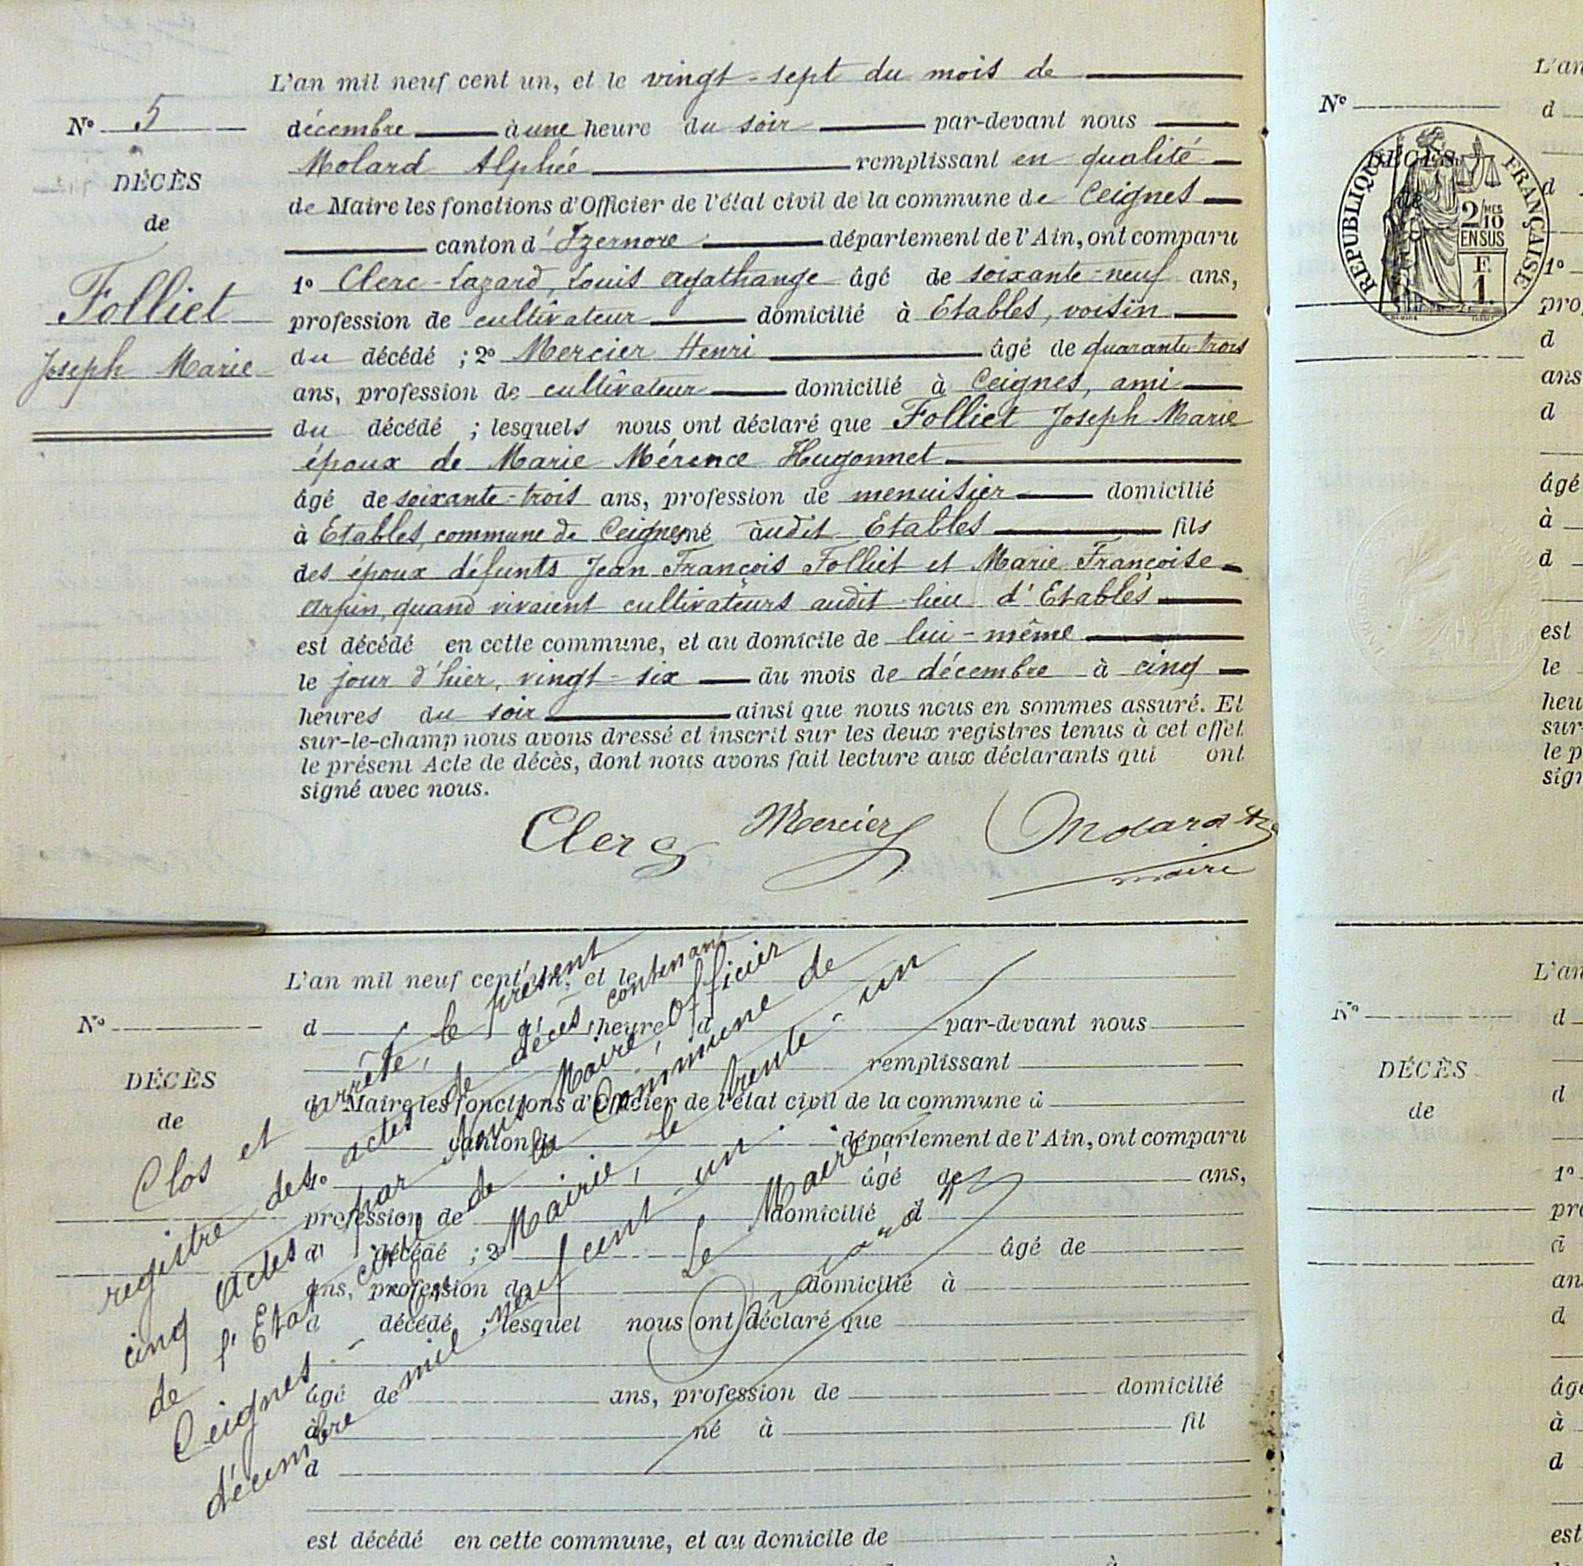 L'an mil neuf cent un, et le vingt-sept du mois de
N° 5
décembre à une heure du soir par-devant nous
Molard Alphée remplissant en qualité
DÉCÈS
de Maire les fonctions d'Officier de l'état civil de la commune de Ceignes
de
canton d'Izernore département de l'Ain, ont comparu
Folliet
Joseph Marie
1° Clerc-Lazard, Louis Agathange âgé de soixante-neuf ans,
profession de cultivateur domicilié à Etables, voisin
du décédé ; 2° Mercier Henri âgé de quarante-trois
ans, profession de cultivateur domicilié à Ceignes, ami
du décédé ; lesquels nous ont déclaré que Folliet Joseph Marie
époux de Marie Mérence Hugonnet
âgé de soixante-trois ans, profession de menuisier domicilié
à Etables, commune de Ceignes né audit Etables fils
des époux défunts Jean François Folliet et Marie Françoise
Arpin, quand vivaient cultivateurs audit lieu d'Etables
est décédé en cette commune, et au domicile de lui-même
le jour d'hier, vingt-six du mois de décembre à cinq
heures du soir ainsi que nous nous en sommes assuré. Et
sur-le-champ nous avons dressé et inscrit sur les deux registres tenus à cet effet
le présent Acte de décès, dont nous avons fait lecture aux déclarants qui ont
signé avec nous.
Clerc Mercier Molard
maire
L'an mil neuf cent un, et le
N°
d à heure d par-devant nous
remplissant
DÉCÈS
d Maire les fonctions d'Officier de l'état civil de la commune d
de
canton d département de l'Ain, ont comparu
1° âgé de ans,
profession de domicilié à
d décédé ; 2° âgé de
ans, profession de domicilié à
d décédé ; lesquel nous ont déclaré que
âgé de ans, profession de domicilié
à né à fil
d
est décédé en cette commune, et au domicile de
Clos et arrêté, le présent
registre des actes de décès, contenant
cinq actes par Nous Maire, Officier
de l'Etat civil de la Commune de
Ceignes. En Mairie, le trente-un
décembre mil neuf cent un.
Le Maire
Molard
L'an
N°
d
DÉCÈS
de
RÉPUBLIQUE FRANÇAISE
2/10 MES
EN SUS
F.
1.
d
1°
prof
d
ans
d
âgé
à
d
est
le
heu
sur-
le p
sign
L'an
N°
d
DÉCÈS
de
d
1°
pro
d
an
d
âgé
à
d
est